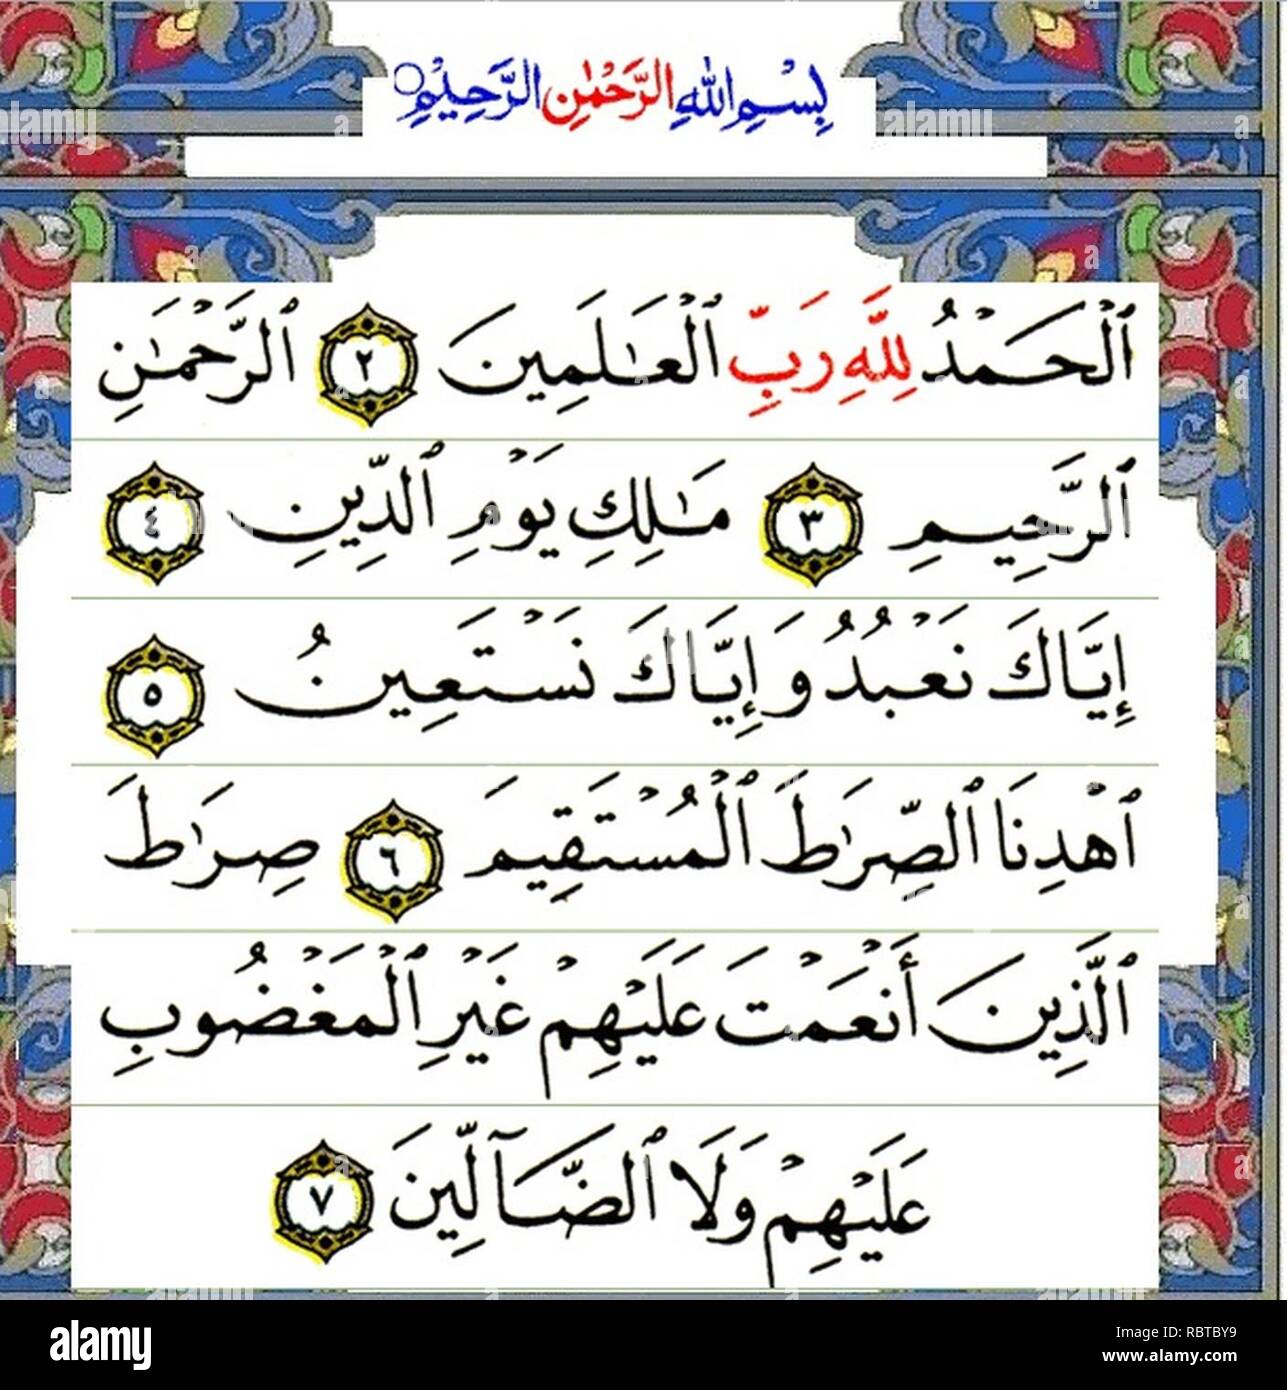 بِسْمِ اللهِ الرَّحْمٰنِ الرَّحِيْمِ
ٱلْحَمْدُ لِلَّهِ رَبِّ ٱلْعَٰلَمِينَ ٢ ٱلرَّحْمَٰنِ
ٱلرَّحِيمِ ٣ مَٰلِكِ يَوْمِ ٱلدِّينِ ٤
إِيَّاكَ نَعْبُدُ وَإِيَّاكَ نَسْتَعِينُ ٥
ٱهْدِنَا ٱلصِّرَٰطَ ٱلْمُسْتَقِيمَ ٦ صِرَٰطَ
ٱلَّذِينَ أَنْعَمْتَ عَلَيْهِمْ غَيْرِ ٱلْمَغْضُوبِ
عَلَيْهِمْ وَلَا ٱلضَّآلِّينَ ٧
alamy
Image ID: RBTBY9
www.alamy.com